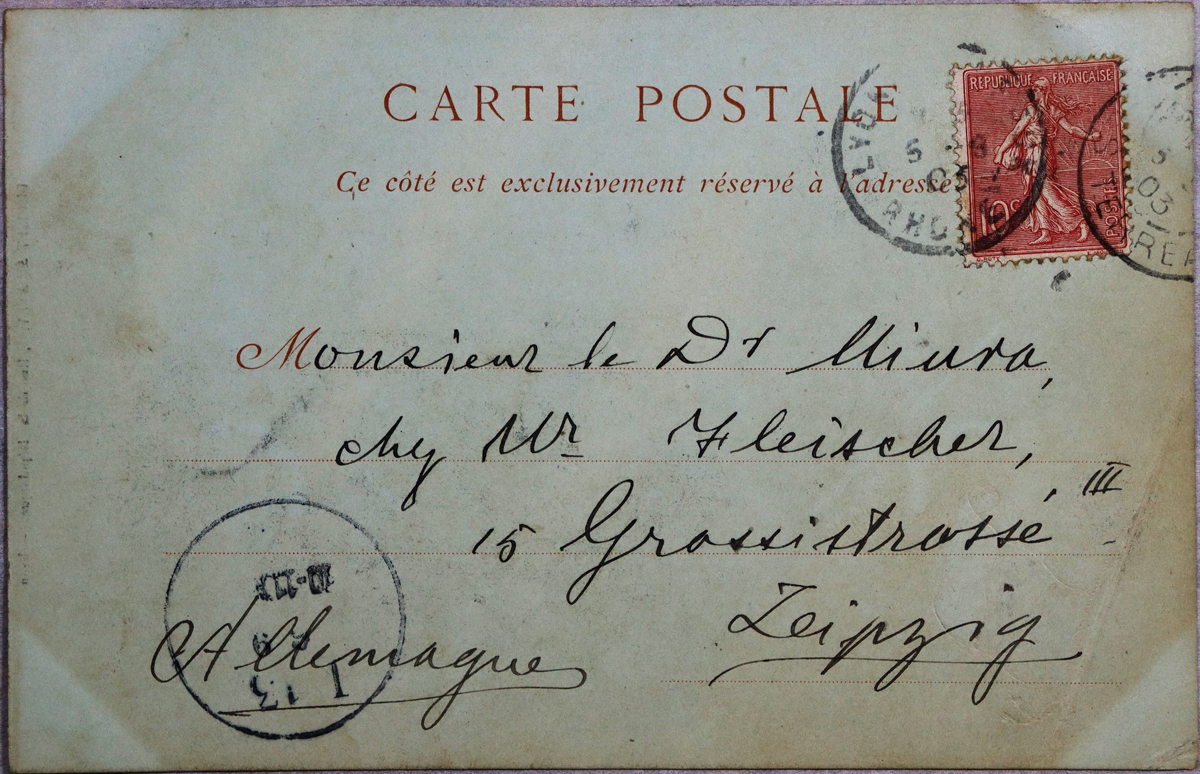 CARTE POSTALE
Ce côté est exclusivement réservé à l'adresse
REPUBLIQUE FRANÇAISE
10c
POSTES
RHONE
5
03
03
Monsieur le Dr Miura,
chez Mr Fleischer,
15 Grassistrasse, III
Leipzig
Allemagne